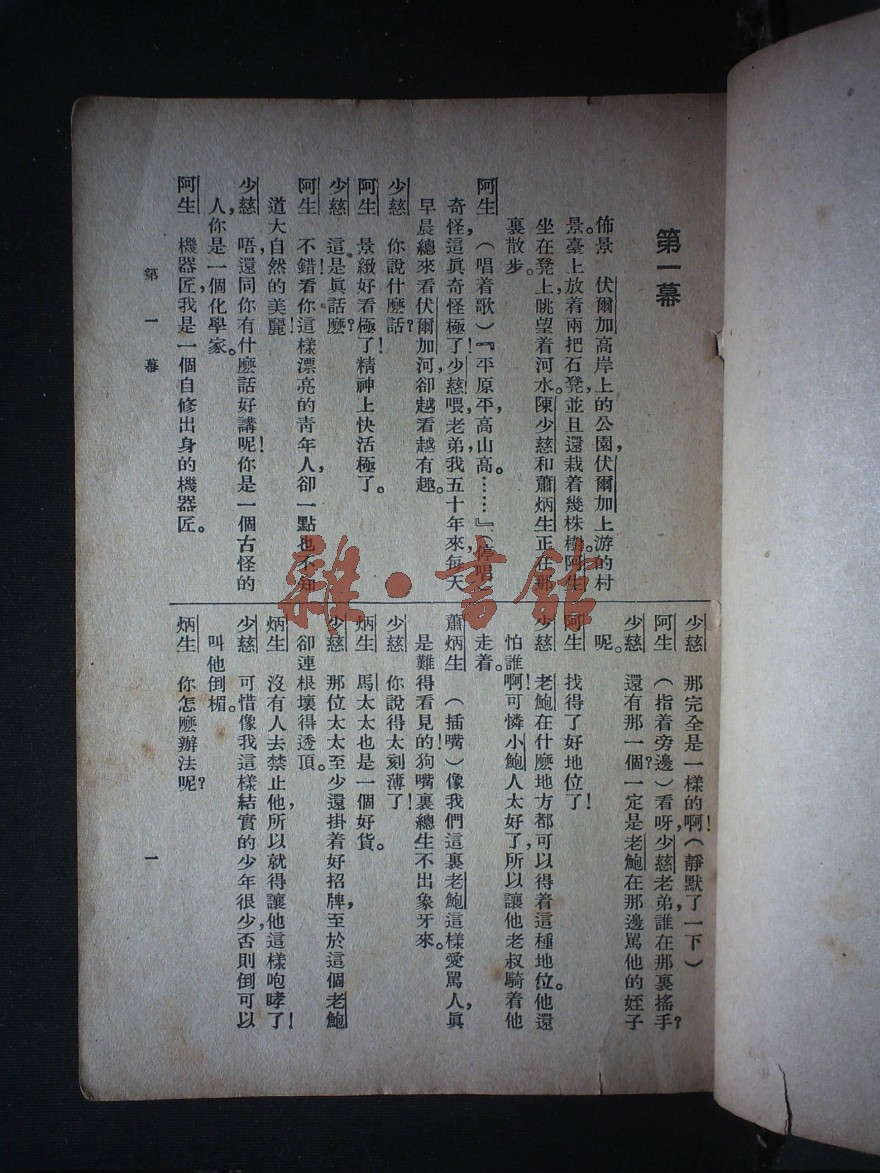 第一幕
佈景　伏爾加高岸上的公園，伏爾加上游的村
景。臺上放着兩把石凳，並且還栽着幾株樹。阿生
坐在凳上，眺望着河水。陳少慈和蕭炳生正在那
裏散步。
阿生　（唱着歌）『平原平，高山高。……』（停唱）
奇怪，這眞奇怪極了！少慈，喂，老弟，我五十年來，每天
早晨總來看伏爾加河，卻越看越有趣。
少慈　你說什麼話？
阿生　景緻好看極了！精神上快活極了。
少慈　這是眞話麼？
阿生　不錯！看你這樣漂亮的靑年人，卻一點也不知
道大自然的美麗！
少慈　唔，還同你有什麼話好講呢！你是一個古怪的
人，你是一個化學家。
阿生　機器匠，我是一個自修出身的機器匠。
少慈　那完全是一樣的啊！（靜默了一下）
阿生　（指着旁邊）看呀，少慈老弟，誰在那裏搖手？
少慈　還有那一個？一定是老鮑在那邊罵他的姪子
呢。
阿生　找得了好地位了！
少慈　老鮑在什麼地方都可以得着這種地位。他還
怕誰啊！可憐小鮑人太好了，所以讓他老叔騎着他
走着。
蕭炳生　（插嘴）像我們這裏老鮑這樣愛罵人，眞
是難得看見的！狗嘴裏總生不出象牙來。
少慈　你說得太刻薄了！
炳生　馬太太也是一個好貨。
少慈　那位太太至少還掛着好招牌，至於這個老鮑
卻連根壞得透頂。
炳生　沒有人去禁止他，所以就得讓他這樣咆哮了！
少慈　可惜像我這樣結實的少年很少，否則倒可以
叫他倒楣。
炳生　你怎麼辦法呢？
第一幕
一
雜·書館